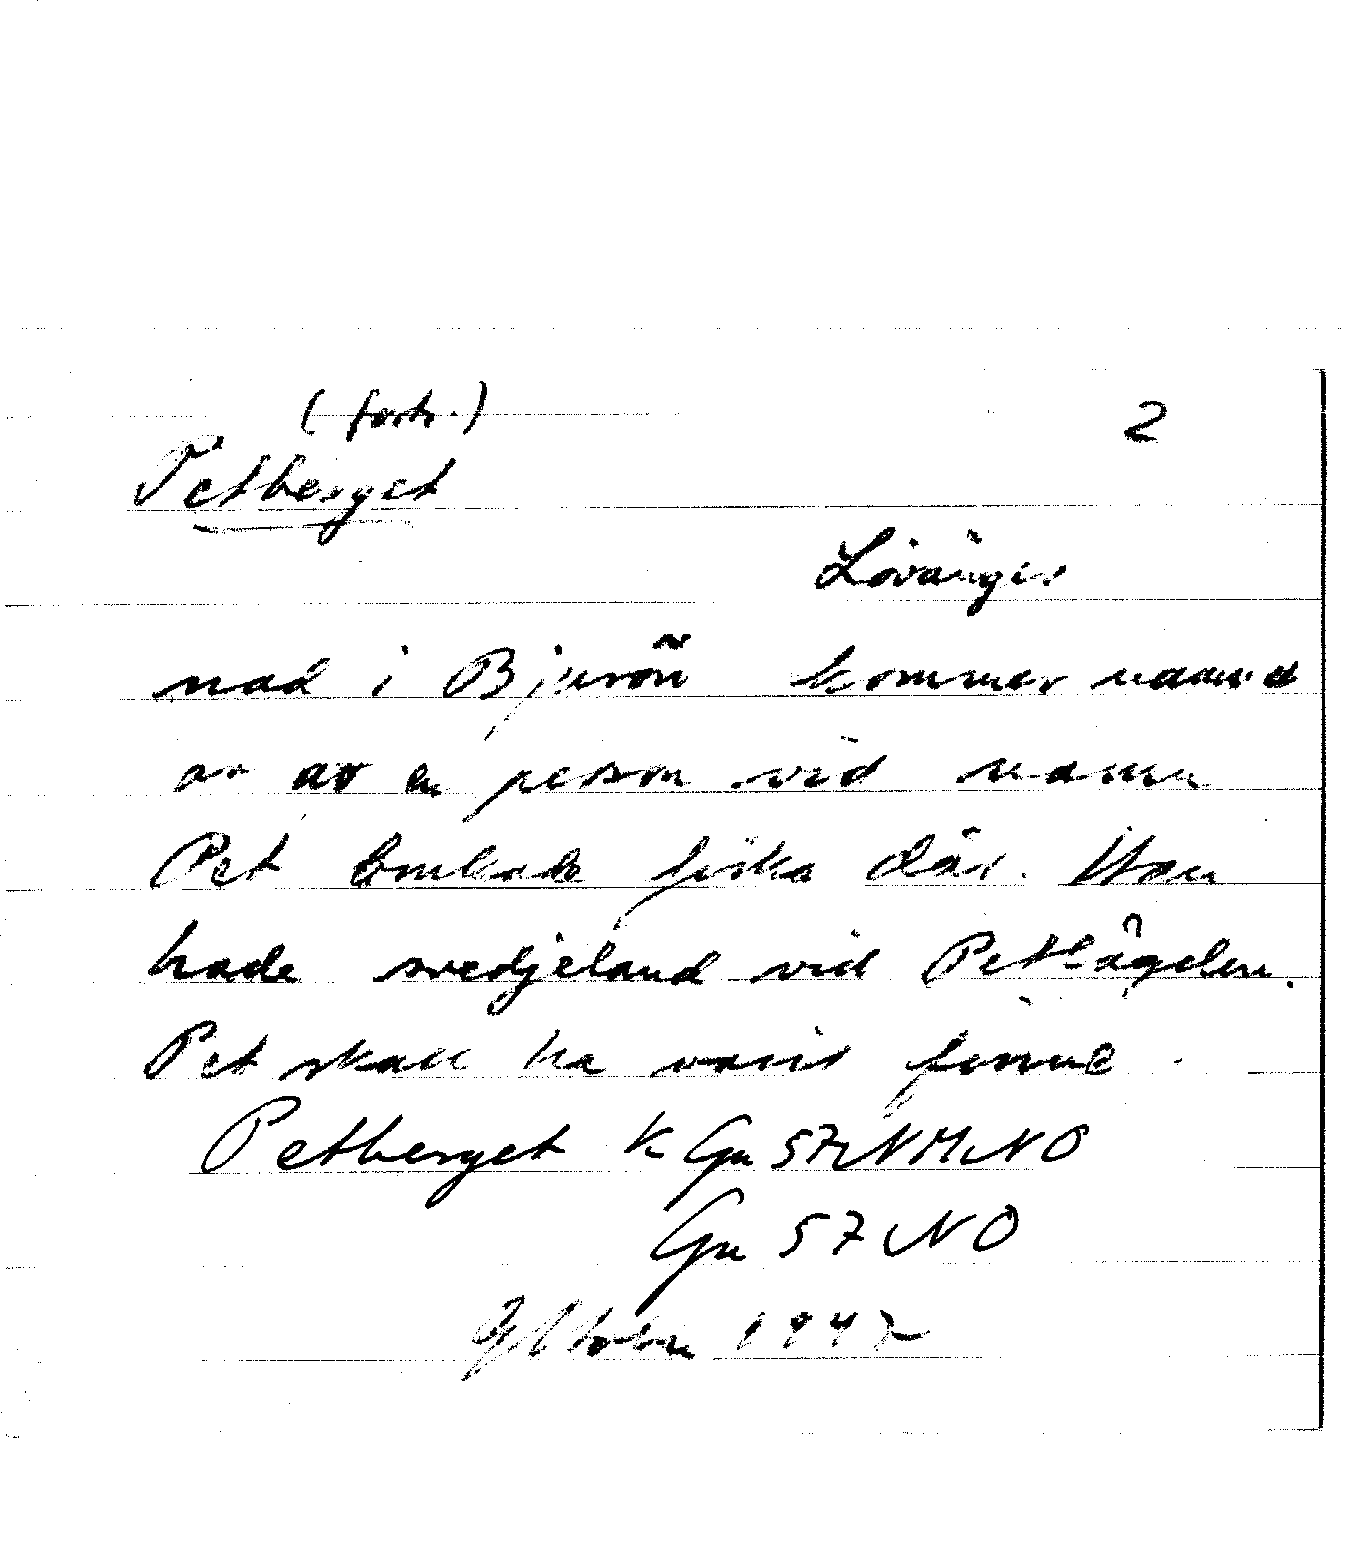 (forts.) 2
Petberget
Lövånger
nad i Bjurön kommer namnet
av av en person vid namn
Pet brukade fiska där. Han
hade svedjeland vid Pettågelen.
Pet skall ha varit finne.
Petberget k Gu 57 NM, NO
Gu 57 NO
Oktober 1947